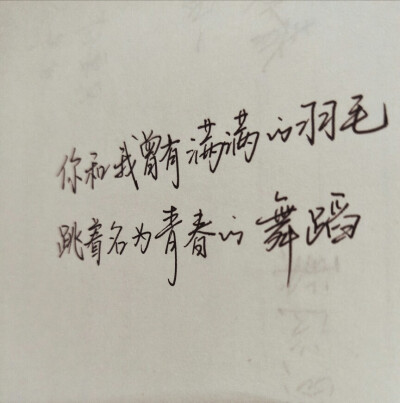 你和我曾有满满的羽毛
跳着名为青春的舞蹈